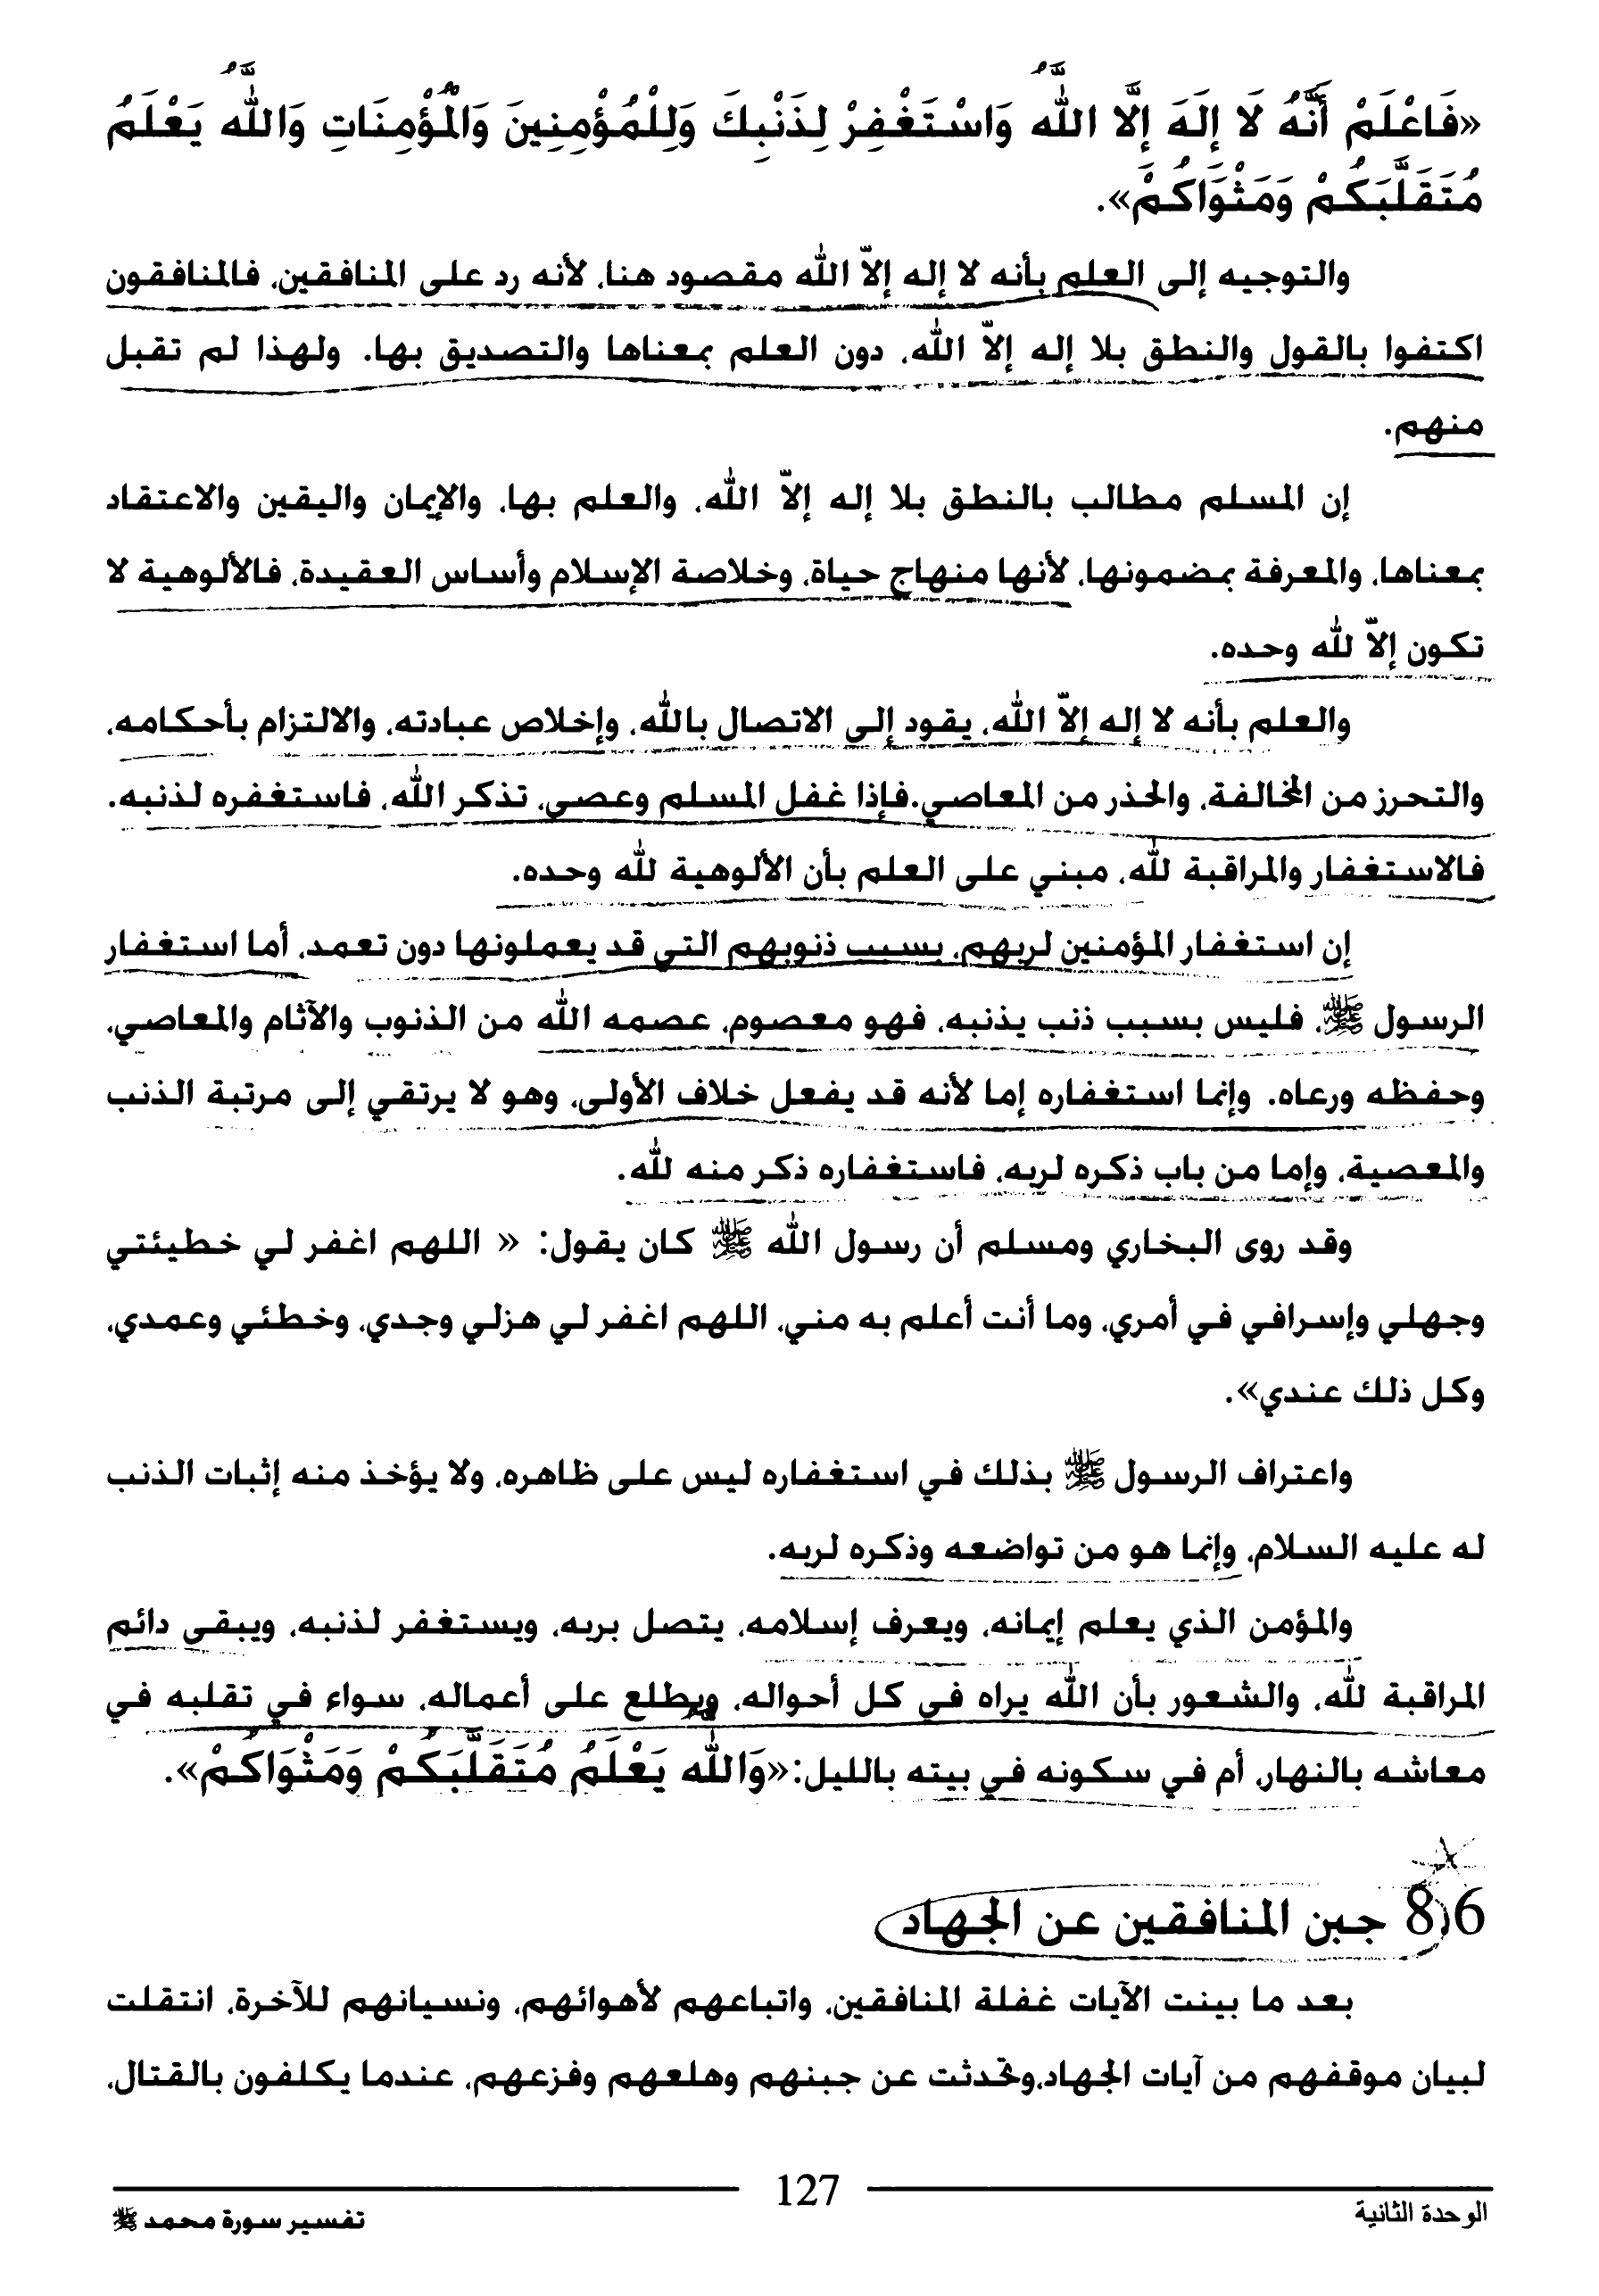 «فَاعْلَمْ أَنَّهُ لَا إِلَهَ إِلَّا اللَّهُ وَاسْتَغْفِرْ لِذَنْبِكَ وَلِلْمُؤْمِنِينَ وَالْمُؤْمِنَاتِ وَاللَّهُ يَعْلَمُ
مُتَقَلَّبَكُمْ وَمَثْوَاكُمْ».
والتوجيه إلى العلم بأنه لا إله إلاّ الله مقصود هنا، لأنه رد على المنافقين، فالمنافقون
اكتفوا بالقول والنطق بلا إله إلاّ الله، دون العلم بمعناها والتصديق بها. ولهذا لم تقبل
منهم.
إن المسلم مطالب بالنطق بلا إله إلاّ الله، والعلم بها، والإيمان واليقين والاعتقاد
بمعناها، والمعرفة بمضمونها، لأنها منهاج حياة، وخلاصة الإسلام وأساس العقيدة، فالألوهية لا
تكون إلاّ لله وحده.
والعلم بأنه لا إله إلاّ الله، يقود إلى الاتصال بالله، وإخلاص عبادته، والالتزام بأحكامه،
والتحرز من المخالفة، والحذر من المعاصي.فإذا غفل المسلم وعصى، تذكر الله، فاستغفره لذنبه.
فالاستغفار والمراقبة لله، مبني على العلم بأن الألوهية لله وحده.
إن استغفار المؤمنين لربهم، بسبب ذنوبهم التي قد يعملونها دون تعمد، أما استغفار
الرسول ﷺ، فليس بسبب ذنب يذنبه، فهو معصوم، عصمه الله من الذنوب والآثام والمعاصي،
وحفظه ورعاه. وإنما استغفاره إما لأنه قد يفعل خلاف الأولى، وهو لا يرتقي إلى مرتبة الذنب
والمعصية، وإما من باب ذكره لربه، فاستغفاره ذكر منه لله.
وقد روى البخاري ومسلم أن رسول الله ﷺ كان يقول: « اللهم اغفر لي خطيئتي
وجهلي وإسرافي في أمري، وما أنت أعلم به مني، اللهم اغفر لي هزلي وجدي، وخطئي وعمدي،
وكل ذلك عندي».
واعتراف الرسول ﷺ بذلك في استغفاره ليس على ظاهره، ولا يؤخذ منه إثبات الذنب
له عليه السلام، وإنما هو من تواضعه وذكره لربه.
والمؤمن الذي يعلم إيمانه، ويعرف إسلامه، يتصل بربه، ويستغفر لذنبه، ويبقى دائم
المراقبة لله، والشعور بأن الله يراه في كل أحواله، ويطلع على أعماله، سواء في تقلبه في
معاشه بالنهار، أم في سكونه في بيته بالليل:«وَاللَّهُ يَعْلَمُ مُتَقَلَّبَكُمْ وَمَثْوَاكُمْ».
8,6 جبن المنافقين عن الجهاد
بعد ما بينت الآيات غفلة المنافقين، واتباعهم لأهوائهم، ونسيانهم للآخرة، انتقلت
لبيان موقفهم من آيات الجهاد،وتحدثت عن جبنهم وهلعهم وفزعهم، عندما يكلفون بالقتال،
127
الوحدة الثانية
تفسير سورة محمد ﷺ